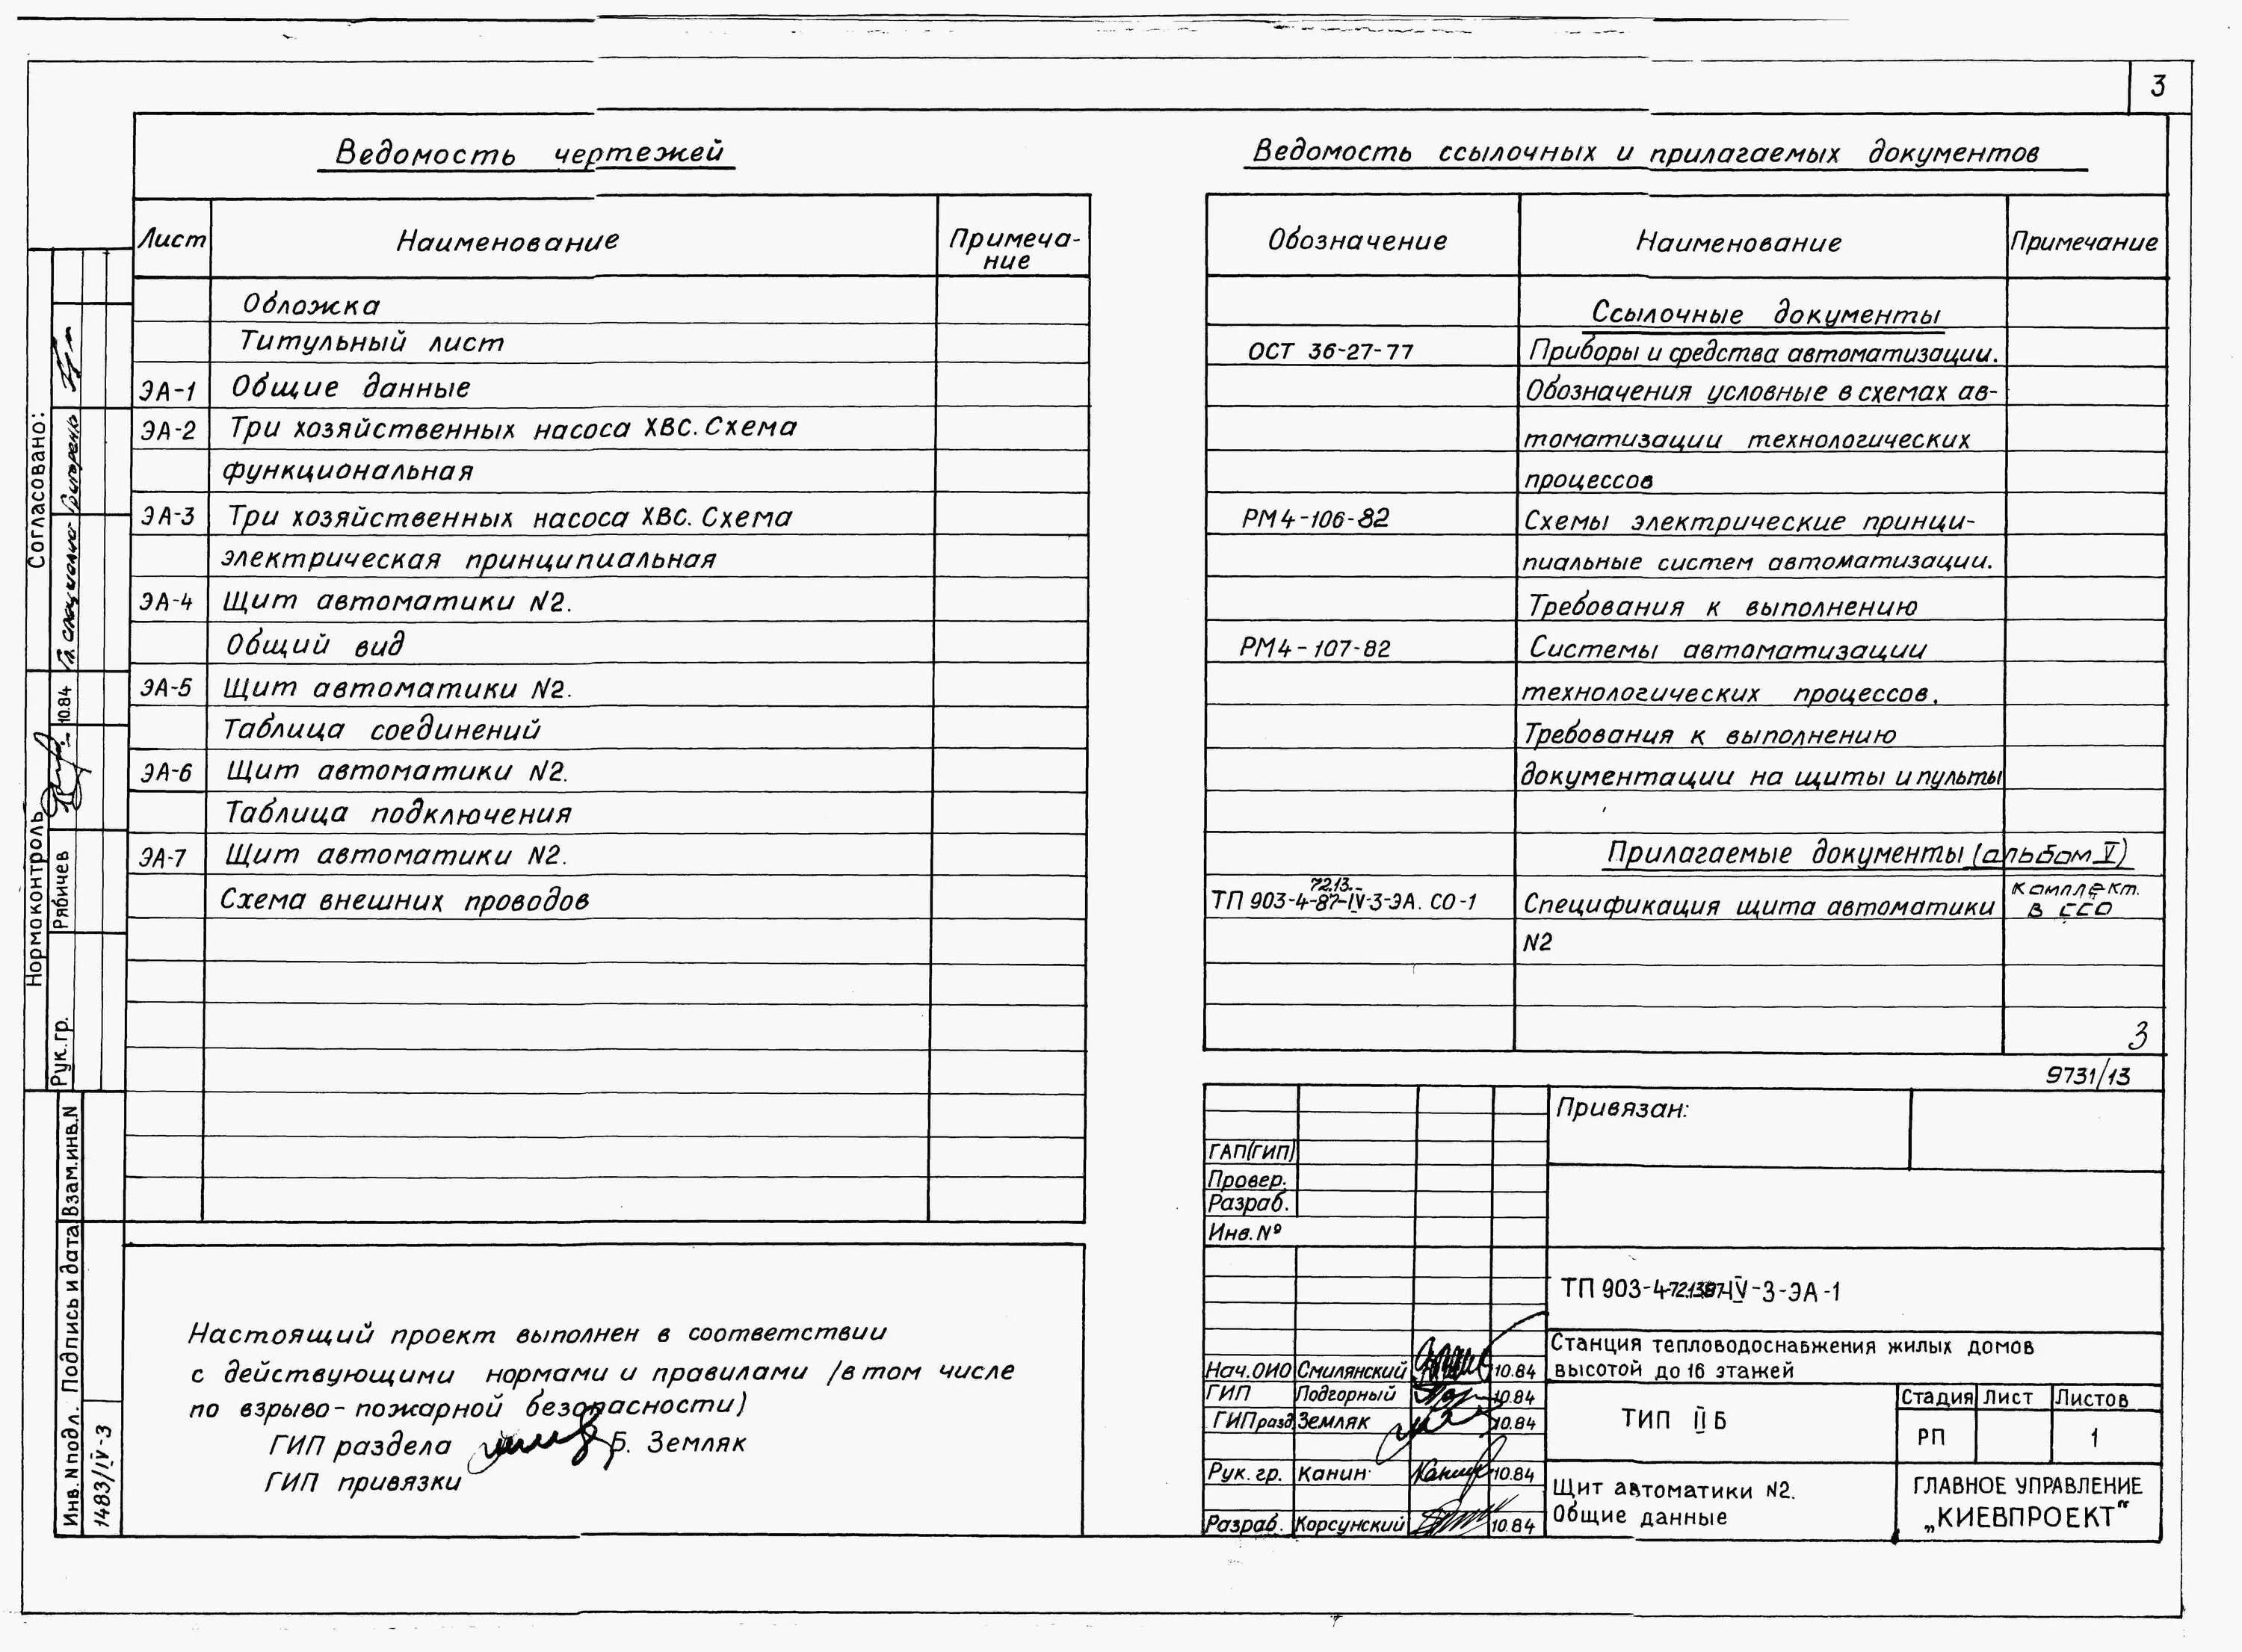 3
Ведомость чертежей
Лист Наименование Примеча-
ние
Обложка
Титульный лист
ЭА-1 Общие данные
ЭА-2 Три хозяйственных насоса ХВС. Схема
функциональная
ЭА-3 Три хозяйственных насоса ХВС. Схема
электрическая принципиальная
ЭА-4 Щит автоматики N2.
Общий вид
ЭА-5 Щит автоматики N2.
Таблица соединений
ЭА-6 Щит автоматики N2.
Таблица подключения
ЭА-7 Щит автоматики N2.
Схема внешних проводов
Настоящий проект выполнен в соответствии
с действующими нормами и правилами /в том числе
по взрыво-пожарной безопасности)
ГИП раздела Б. Земляк
ГИП привязки
Ведомость ссылочных и прилагаемых документов
Обозначение Наименование Примечание
Ссылочные документы
ОСТ 36-27-77 Приборы и средства автоматизации.
Обозначения условные в схемах ав-
томатизации технологических
процессов
РМ4-106-82 Схемы электрические принци-
пиальные систем автоматизации.
Требования к выполнению
РМ4-107-82 Системы автоматизации
технологических процессов.
Требования к выполнению
документации на щиты и пульты
Прилагаемые документы (альбом V)
72.13.
ТП 903-4-87-IV-3-ЭА. СО-1 Спецификация щита автоматики комплект.
в ССО
N2
3
9731/13
Привязан:
ГАП(ГИП)
Провер.
Разраб.
Инв. №
ТП 903-4-72.13.87-IV-3-ЭА-1
Станция тепловодоснабжения жилых домов
высотой до 16 этажей
Нач. ОИО Смилянский 10.84
ГИП Подгорный 10.84
ГИП разд. Земляк 10.84
Рук. гр. Канин 10.84
Разраб. Корсунский 10.84
ТИП II Б
Стадия Лист Листов
РП 1
Щит автоматики N2.
Общие данные
ГЛАВНОЕ УПРАВЛЕНИЕ
„КИЕВПРОЕКТ"
Согласовано:
Нормоконтроль
Рук. гр. Рябичев 10.84
Взам. инв. N
Подпись и дата
Инв. N подл.
1483/IV-3